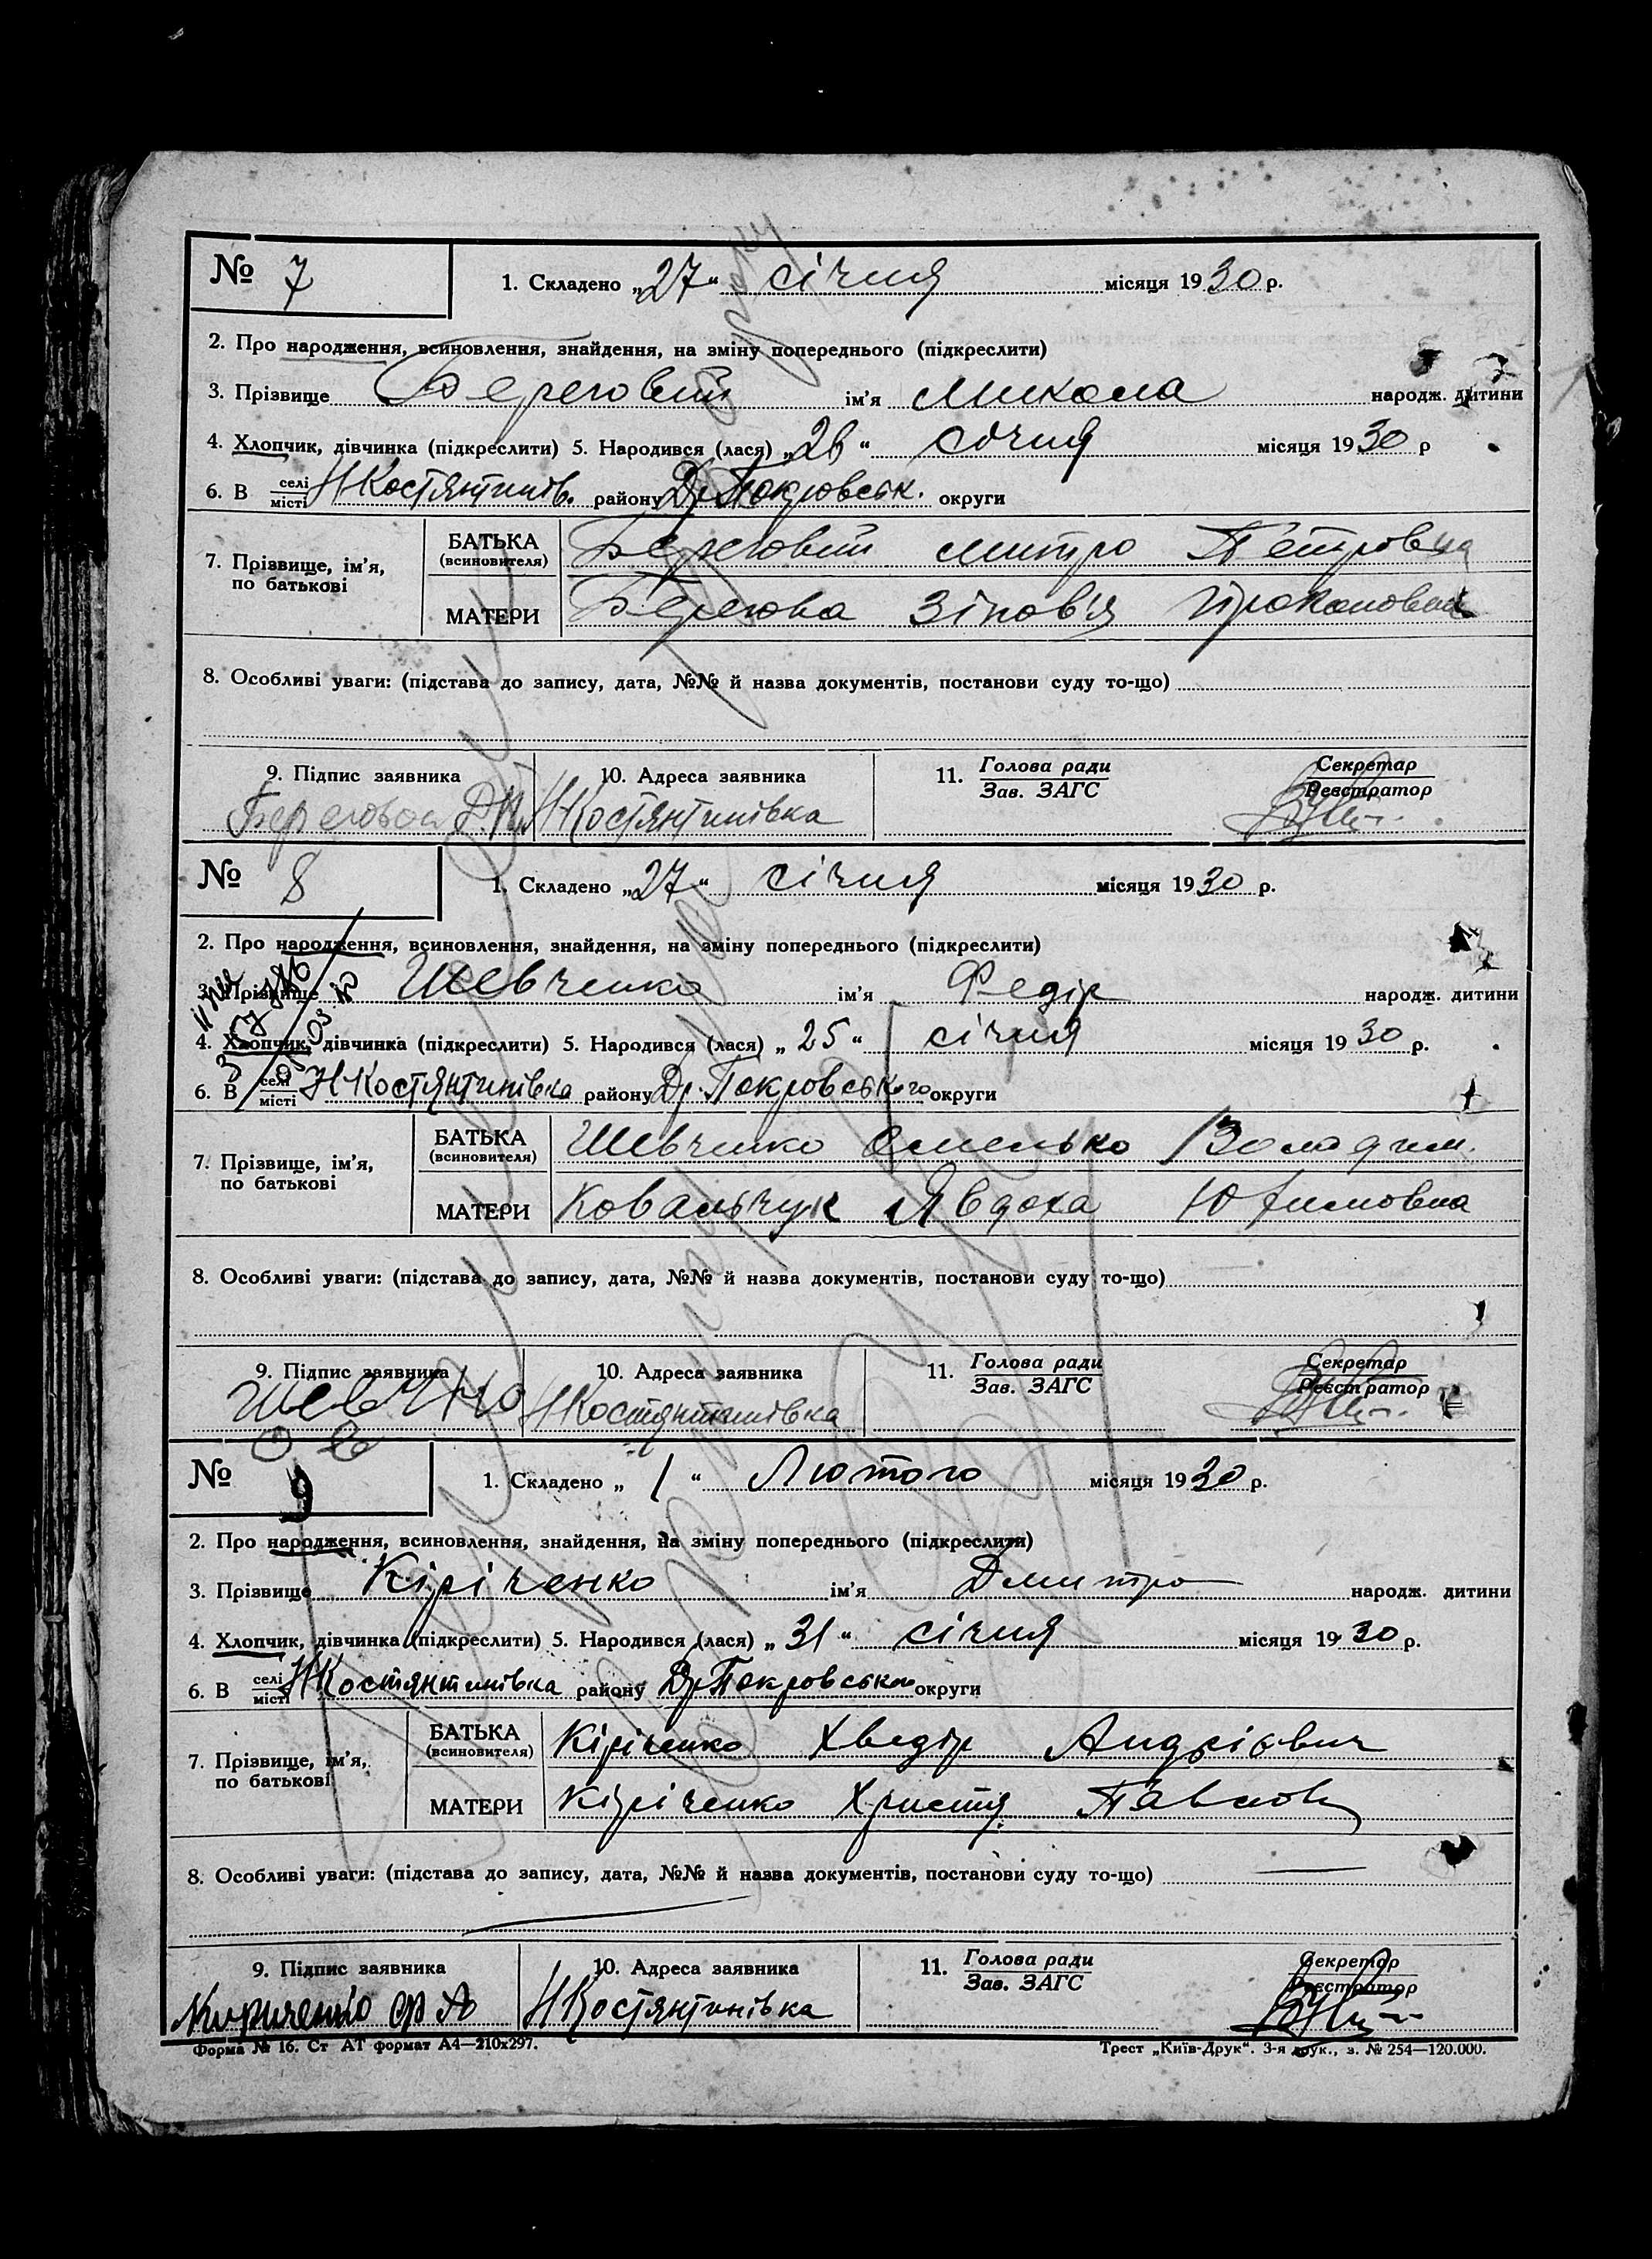 № 7
1. Складено „27“ січня місяця 1930 р.
2. Про народження, всиновлення, знайдення, на зміну попереднього (підкреслити)
3. Прізвище Береговий ім'я Микола народж. дитини
4. Хлопчик, дівчинка (підкреслити) 5. Народився (лася) „26“ січня місяця 1930 р
6. В селі місті НКостянтинів. району Др.Покровськ. округи
7. Прізвище, ім'я, по батькові
БАТЬКА (всиновителя) Береговий Митро
МАТЕРИ Берегова Зінов'я
8. Особливі уваги: (підстава до запису, дата, №№ й назва документів, постанови суду то-що)
9. Підпис заявника
10. Адреса заявника
11. Голова ради Зав. ЗАГС
Секретар Реєстратор
Береговой Д.П. НКостянтинівка
№ 8
1. Складено „27“ січня місяця 1930 р.
2. Про народження, всиновлення, знайдення, на зміну попереднього (підкреслити)
3. Прізвище Шевченко ім'я Федір народж. дитини
4. Хлопчик, дівчинка (підкреслити) 5. Народився (лася) „25“ січня місяця 1930 р.
6. В селі місті НКостянтинівка району Др.Покровського округи
7. Прізвище, ім'я, по батькові
БАТЬКА (всиновителя) Шевченко Омелько Володим.
МАТЕРИ Ковальчук Явдоха Юхимовна
8. Особливі уваги: (підстава до запису, дата, №№ й назва документів, постанови суду то-що)
9. Підпис заявника
10. Адреса заявника
11. Голова ради Зав. ЗАГС
Секретар Реєстратор
НКостянтинівка
№ 9
1. Складено „1“ Лютого місяця 1930 р.
2. Про народження, всиновлення, знайдення, на зміну попереднього (підкреслити)
3. Прізвище Кіріченко ім'я Дмитро народж. дитини
4. Хлопчик, дівчинка (підкреслити) 5. Народився (лася) „31“ січня місяця 1930 р.
6. В селі місті НКостянтинівка району Др.Покровського округи
7. Прізвище, ім'я, по батькові
БАТЬКА (всиновителя) Кіріченко Хведір Андрієвич
МАТЕРИ Кіріченко Христя Павлов
8. Особливі уваги: (підстава до запису, дата, №№ й назва документів, постанови суду то-що)
9. Підпис заявника
10. Адреса заявника
11. Голова ради Зав. ЗАГС
Секретар Реєстратор
Кириченко НКостянтинівка
Форма № 16. Ст АТ формат А4—210х297.
Трест „Київ-Друк“. 3-я друк., з. № 254—120.000.